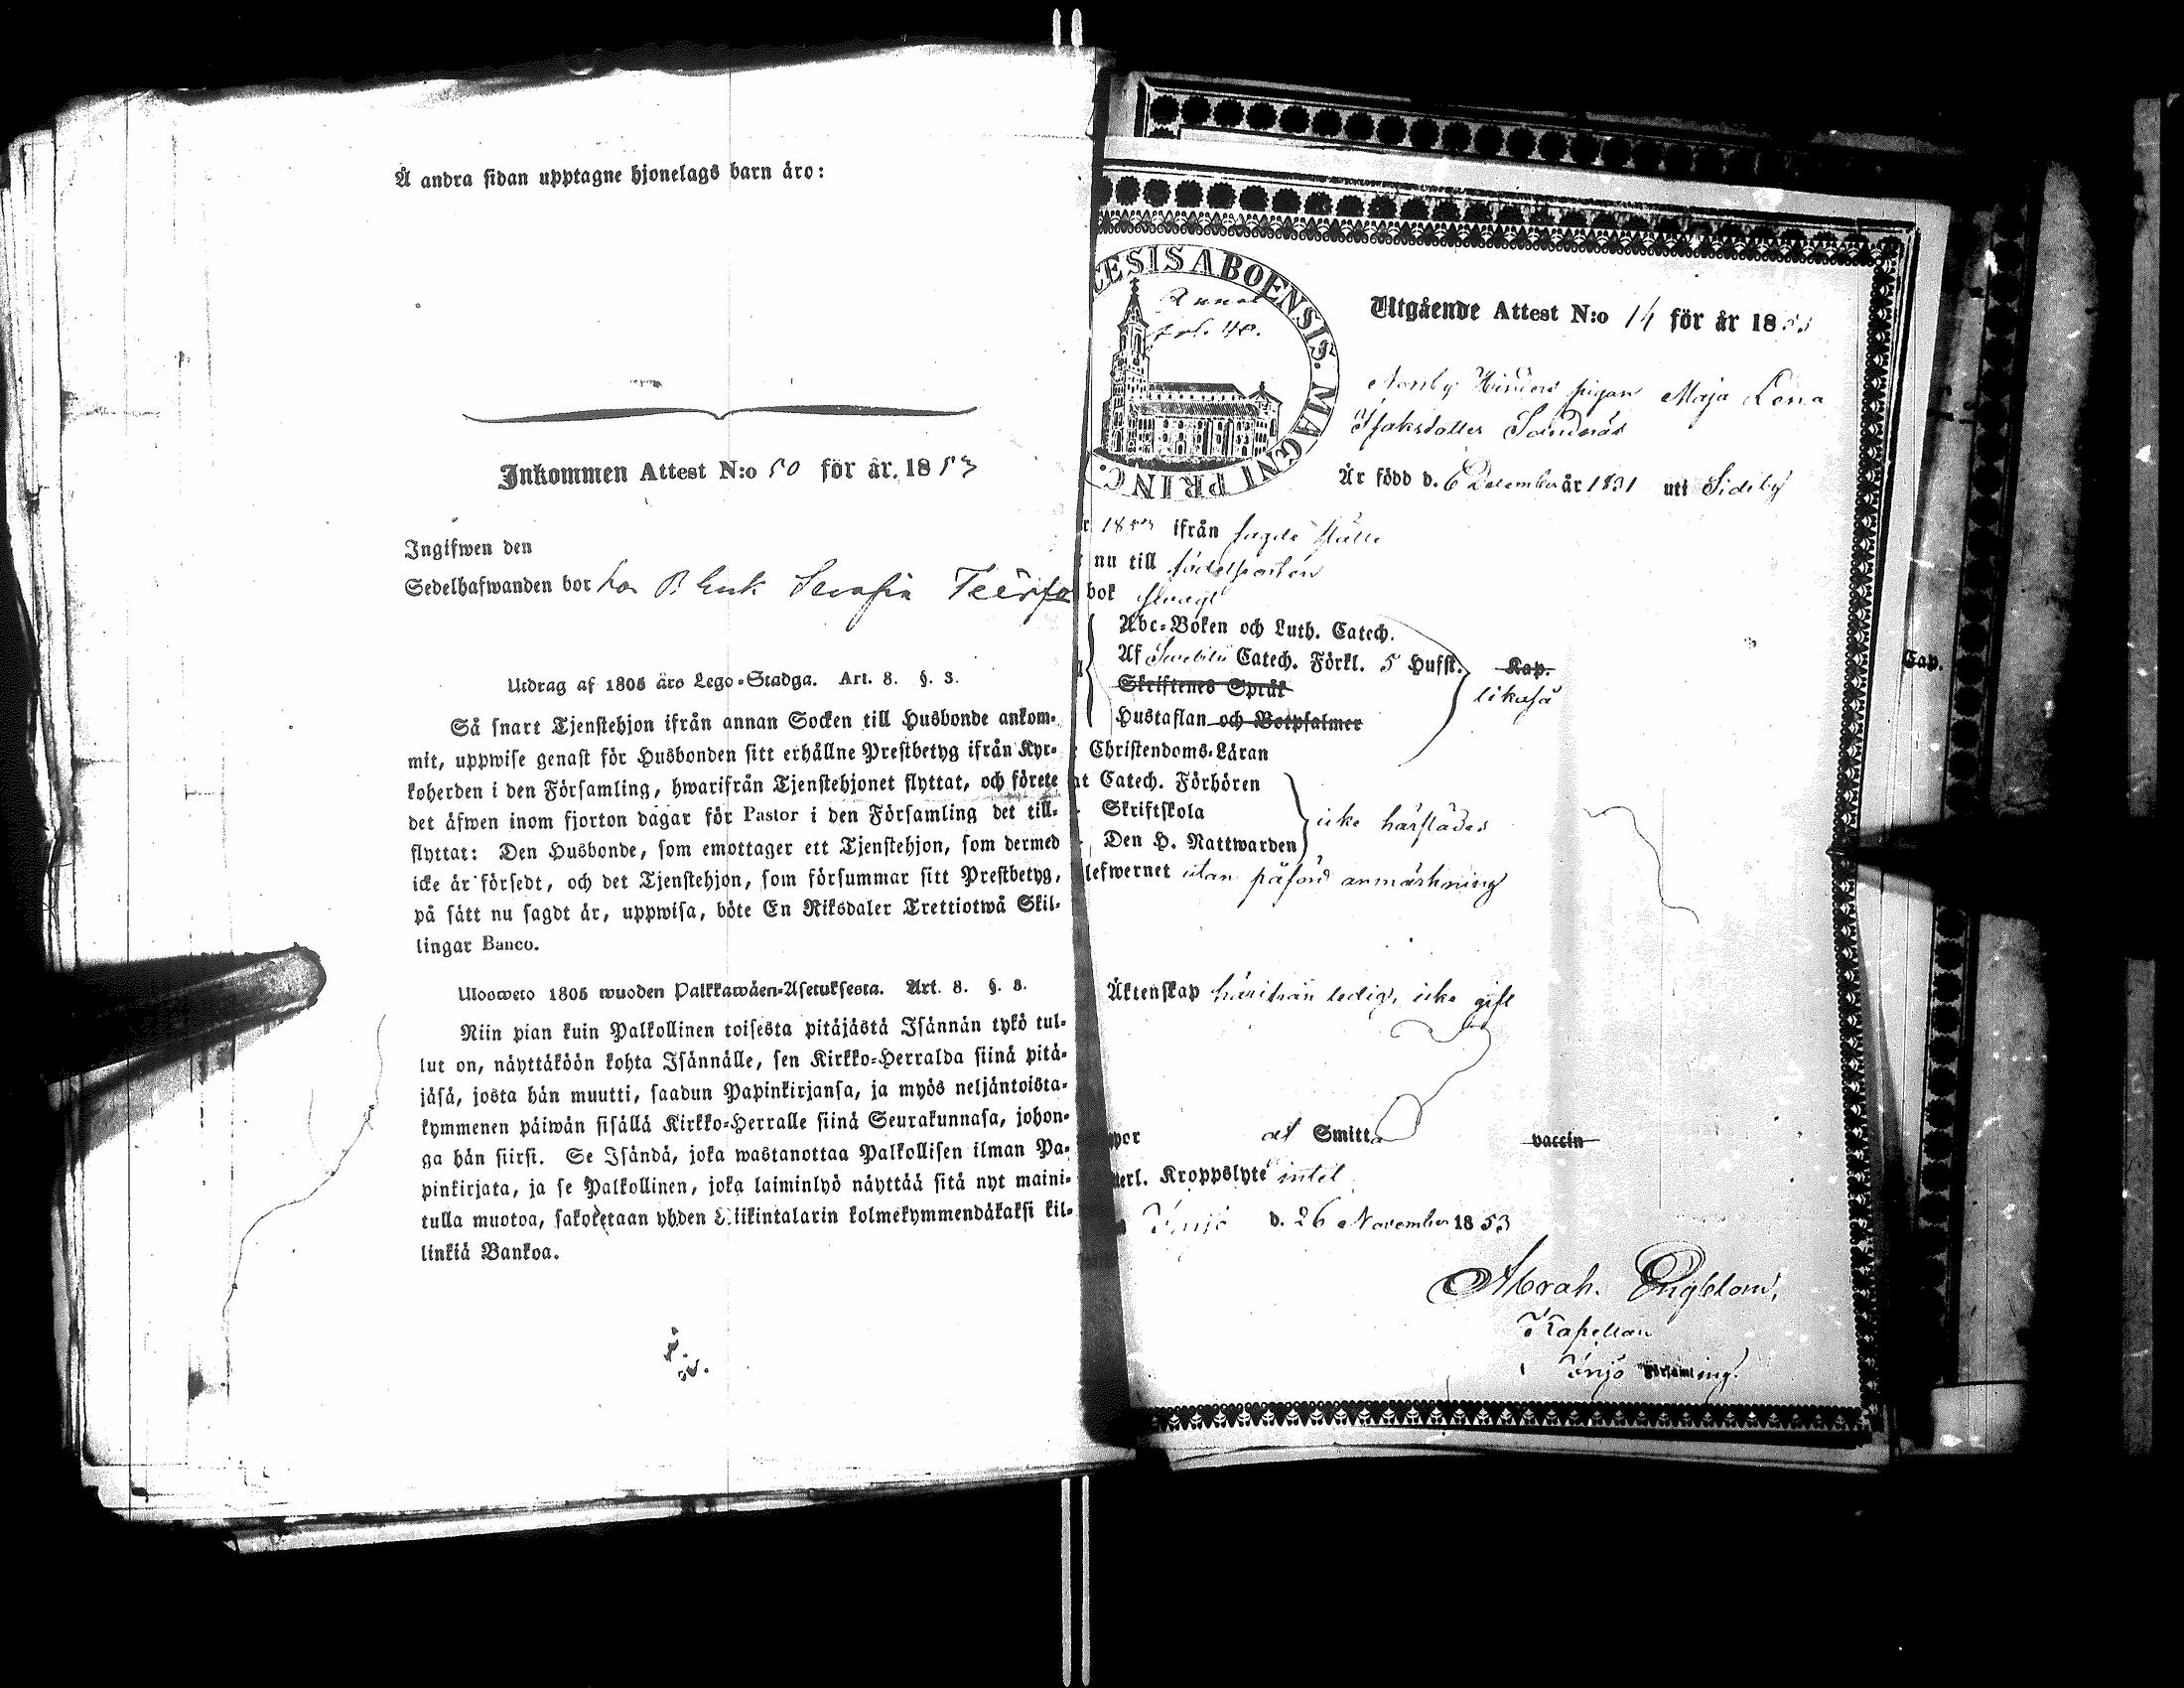 Å andra sidan upptagne hjonelags barn äro:
Inkommen Attest N:o 50 för år 1853
Ingifwen den
Sedelhafwanden bor hos
Utdrag af 1805 års Lego-Stadga. Art. 8. §. 3.
Så snart Tjenstehjon ifrån annan Socken till Husbonde ankom-
mit, uppwise genast för Husbonden sitt erhållne Prestbetyg ifrån Kyr-
koherden i den Församling, hwarifrån Tjenstehjonet flyttat, och förete
det äfwen inom fjorton dagar för Pastor i den Församling det till-
flyttat: Den Husbonde, som emottager ett Tjenstehjon, som dermed
icke är försedt, och det Tjenstehjon, som försummar sitt Prestbetyg,
på sätt nu sagdt är, uppwisa, böte En Riksdaler Trettiotwå Skil-
lingar Banco.
Uloosweto 1805 wuoden Palkkawäen-Asetuksesta. Art. 8. §. 3.
Niin pian kuin Palkollinen toisesta pitäjästä Isännän tykö tul-
lut on, näyttäköön kohta Isännälle, sen Kirkko-Herralda siinä pitä-
jäsä, josta hän muutti, saadun Papinkirjansa, ja myös neljäntoista-
kymmenen päiwän sisällä Kirkko-Herralle siinä Seurakunnasa, johon-
ga hän siirsi. Se Isändä, joka wastanottaa Palkollisen ilman Pa-
pinkirjata, ja se Palkollinen, joka laiminlyö näyttää sitä nyt maini-
tulla muotoa, sakotetaan yhden Riikintalarin kolmekymmendäkaksi kil-
linkiä Bankoa.
CESIS ABOENSIS. MAGNI PRINC.
Utgående Attest N:o 14 för år 1853
pigan Maja Lena
Isaksdotter Sandnäs
Är född d. 6 December år 1831 uti Sideby
1853 ifrån sagde ställe
nu till födelseorten
bok
Abc-Boken och Luth. Catech.
Af Svebilii Catech. Förkl. 5 Hufst. Kap.
likaså
Skriftenes Språk
Hustaflan och Botpsalmer
Christendoms-Läran
Catech. Förhören
Skriftskola
Den H. Nattwarden
icke härstädes
lefwernet utan påförd anmärkning
Äktenskap härifrån ledig, icke gift
af Smitta vaccin
Kroppslyte intet
d. 26 November 1853
Abrah. Engblom,
Kapellan
Församling.
Cap.